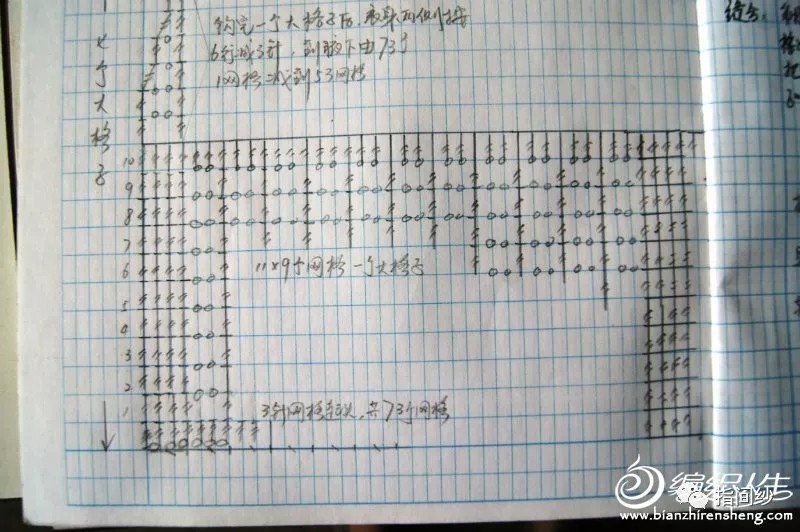 钩完一个大格子后,
6行减3针,到腋下由73个
1网格减到53网格
个
大
格
子
10
9
8
7
6
5
4
3
2
1
11×9个网格一个大格子
3针网格起头,共73个网格
编织人生
指间纱
www.bianzhirensheng.com